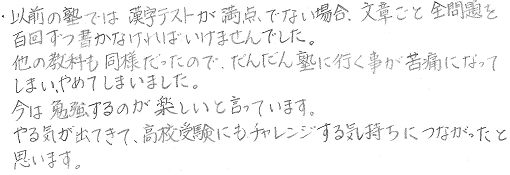 ・以前の塾では漢字テストが満点でない場合、文章ごと全問題を
百回ずつ書かなければいけませんでした。
他の教科も同様だったので、だんだん塾に行く事が苦痛になって
しまい、やめてしまいました。
今は勉強するのが楽しいと言っています。
やる気が出てきて、高校受験にもチャレンジする気持ちにつながったと
思います。